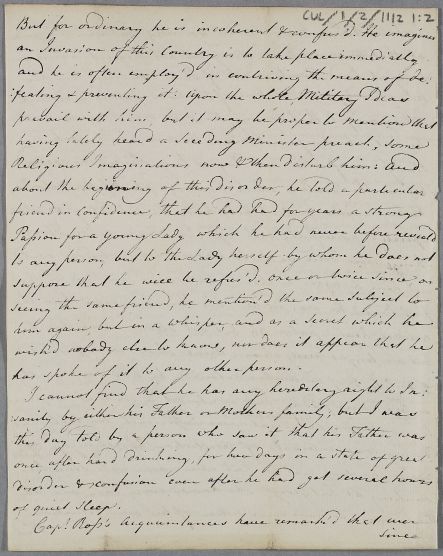 CUL/1/2/1112 1:2
But for ordinary he is incoherent & confus'd. He imagines
an Invasion of this Country is to take place immediatly
and he is often employ'd in contriving the means of de:
:feating & preventing it: Upon the whole Military Ideas
prevail with him, but it may be proper to mention that
having lately heard a Seceding Minister preach, some
Religious Imaginations now & then disturb him: And
about the beginning of this disorder, he told a particular
friend in confidence, that he had had for years a strong
Passion for a young Lady which he had never before reveal'd
to any person, but to the Lady herself by whom he does not
suppose that he will be refus'd. once or twice since on
seeing the same friend, he mention'd the same subject to
him again, but in a whisper, and as a Secret which he
wish'd nobody else to know, nor does it appear that he
has spoke of it to any other person.
I cannot find that he has any hereditary right to In:
:sanity by either his Father or Mothers family; but I was
this day told by a person who saw it that his Father was
once after hard drinking, for two days in a state of great
disorder & confusion even after he had got several hours
of quiet Sleep.
Capt. Ross's Acquaintances have remark'd that ever
since